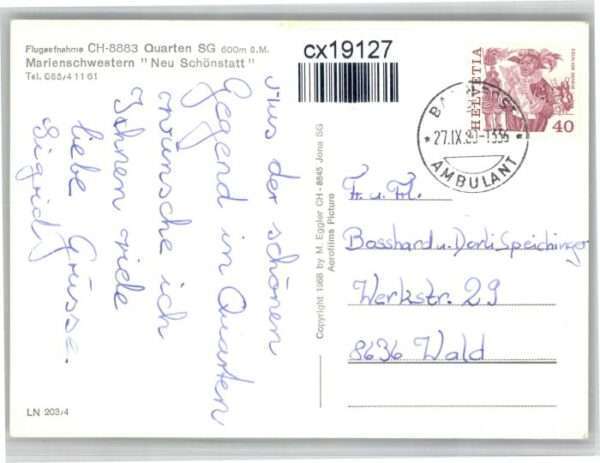 Flugaufnahme CH-8883 Quarten SG 600m ü.M.
Marienschwestern "Neu Schönstatt"
Tel. 085/4 11 61
Aus der schönen
Gegend in Quarten
wünsche ich
Ihnen viele
liebe Grüsse.
Sigrid
LN 203/4
Copyright 1968 by M. Eggler CH-8645 Jona SG
Aerofilms Picture
cx19127
HELVETIA
40
27.IX.
AMBULANT
Fr. u. Frl.
Bosshard u. Dorli Speichinger
Werkstr. 29
8636 Wald